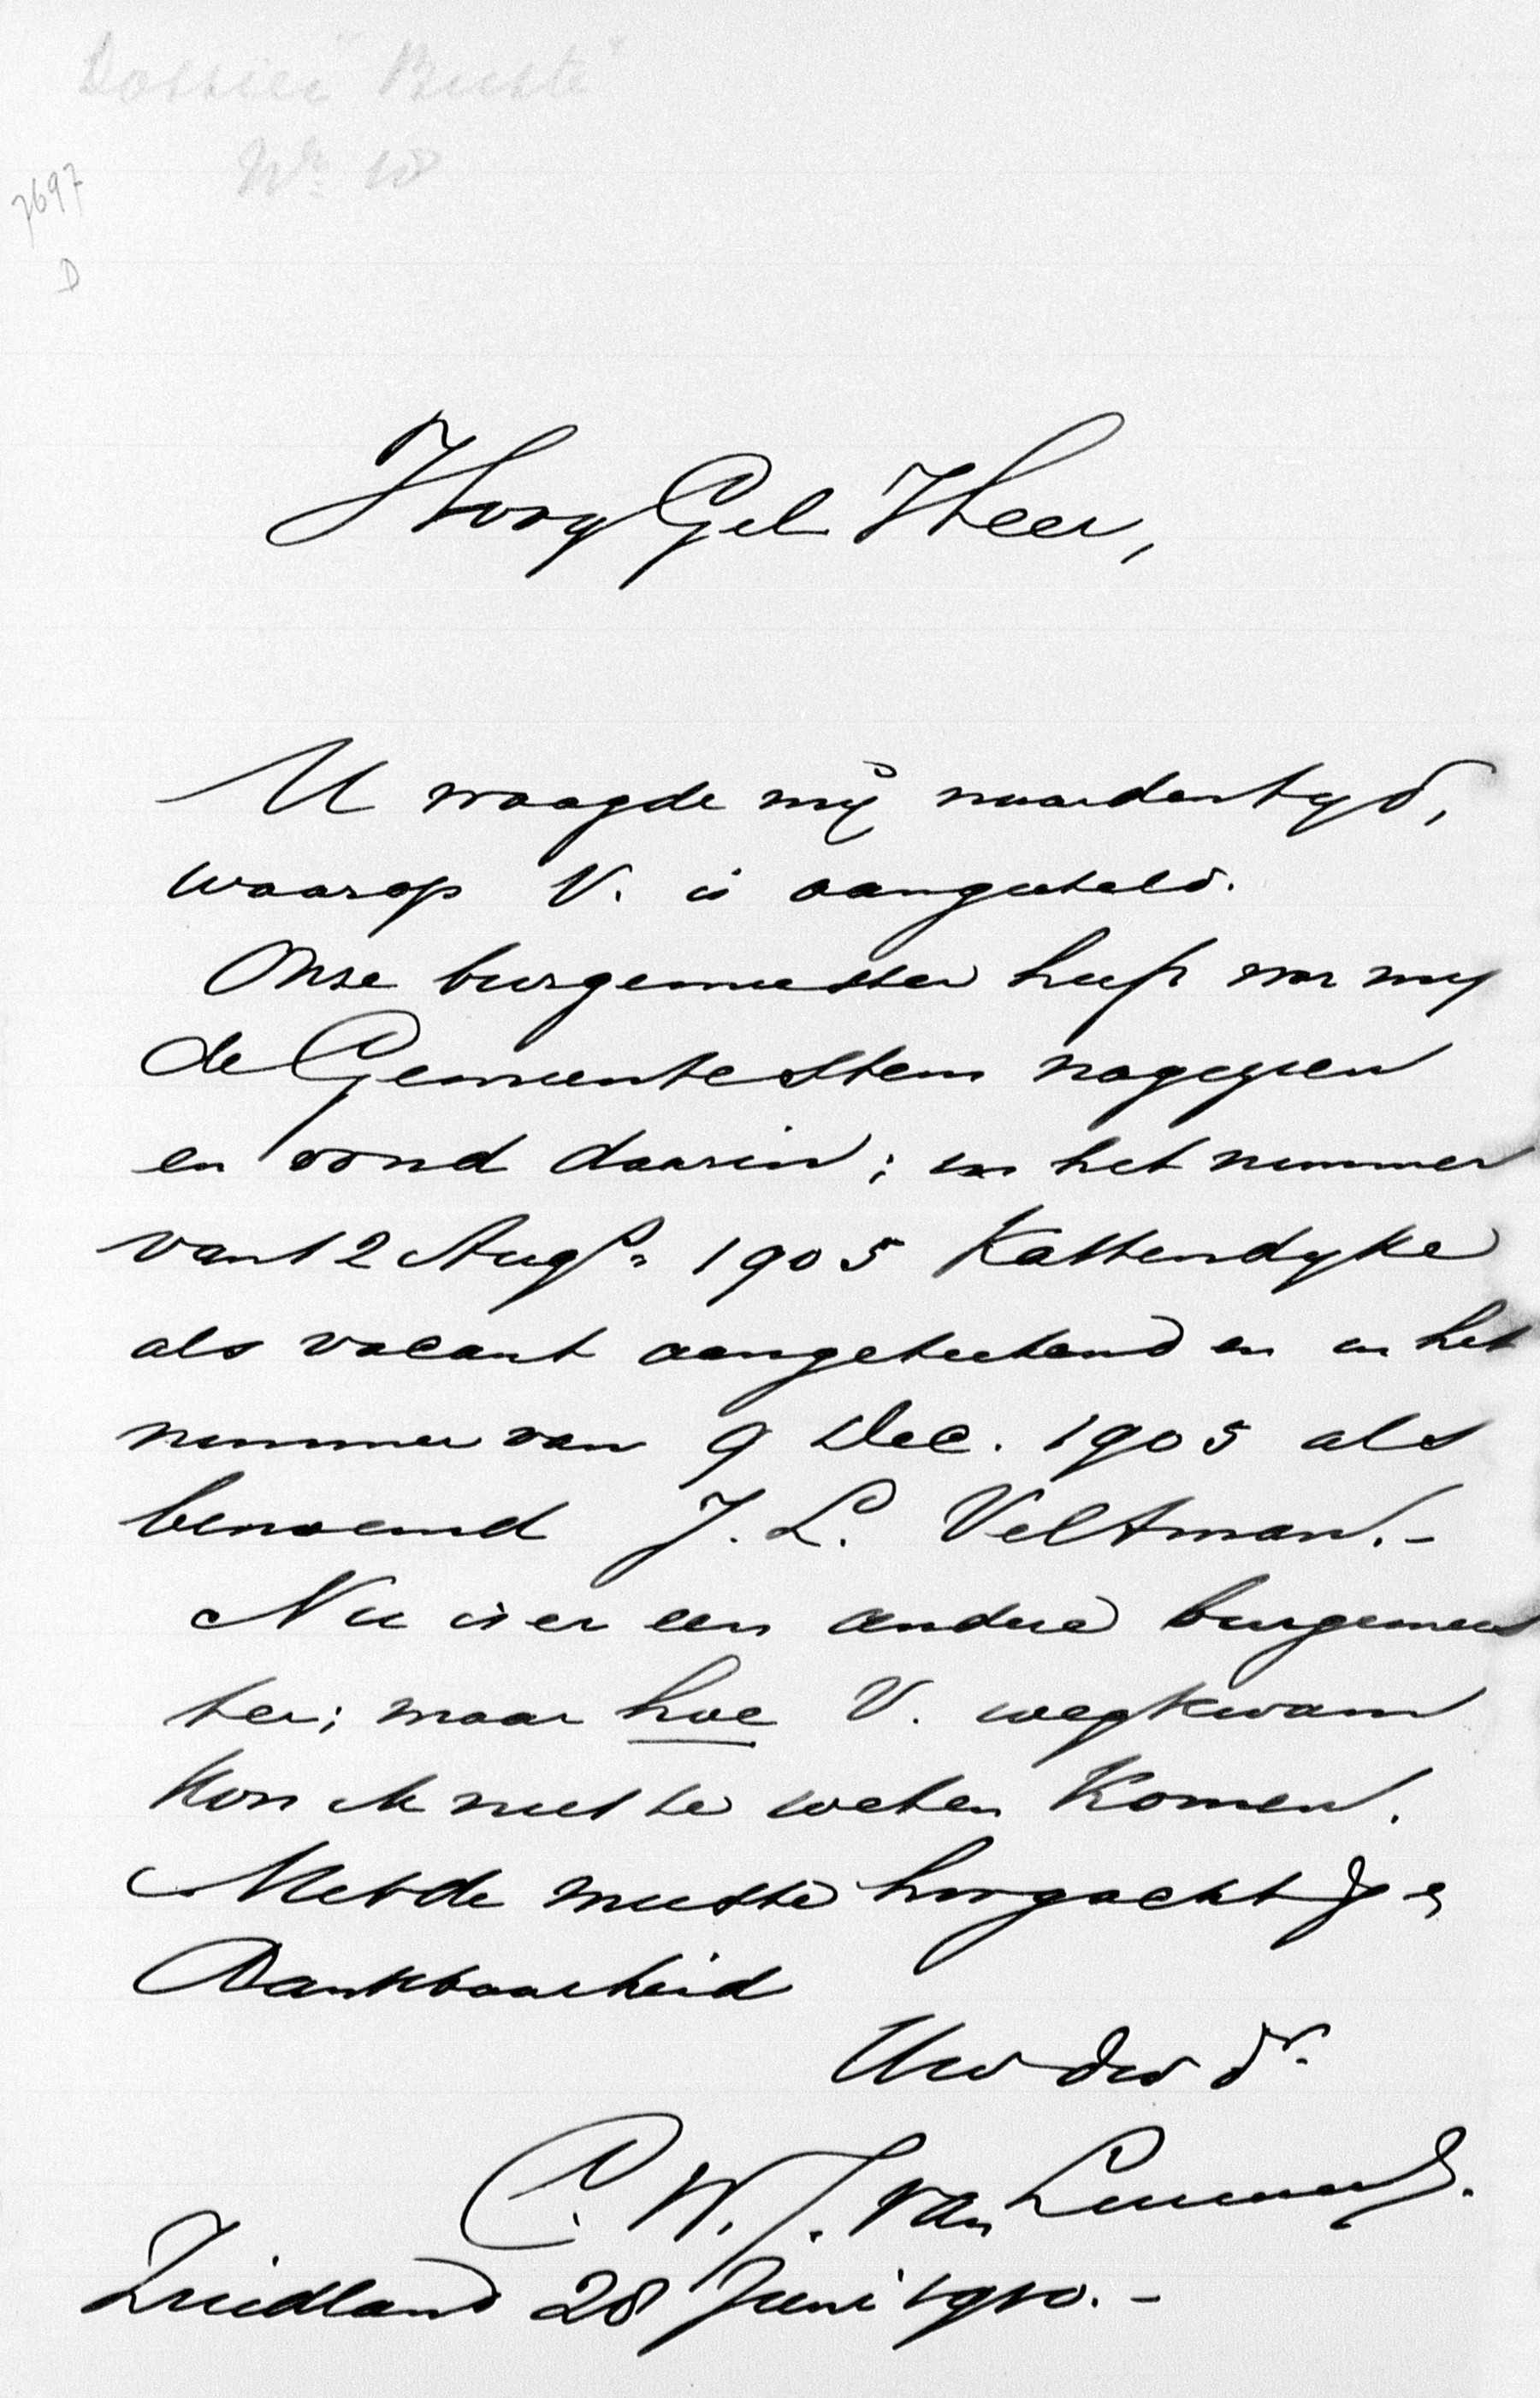 Dossier "Buste"
No 10
7697
D
Hoog Gel Heer,
U vraagde mij naar den tyd,
waarop V. is aangesteld.
Onze burgemeester heeft voor my
de Gemeentestem nagegaan
en vond daarin; in het nummer
van 12 Augs. 1905 Kattendyke
als vacant aangeteekend en in het
nummer van 9 Dec. 1905 als
benoemd J. L. Veltman.-
Nu is er een andere burgemees
ter; maar hoe V. wegkwam
kon ik niet te weten komen.
Met de meeste hoogacht g en
Dankbaarheid
Uw dw dr.
C. W. J. van
Zuidland 28 Juni 1910.-